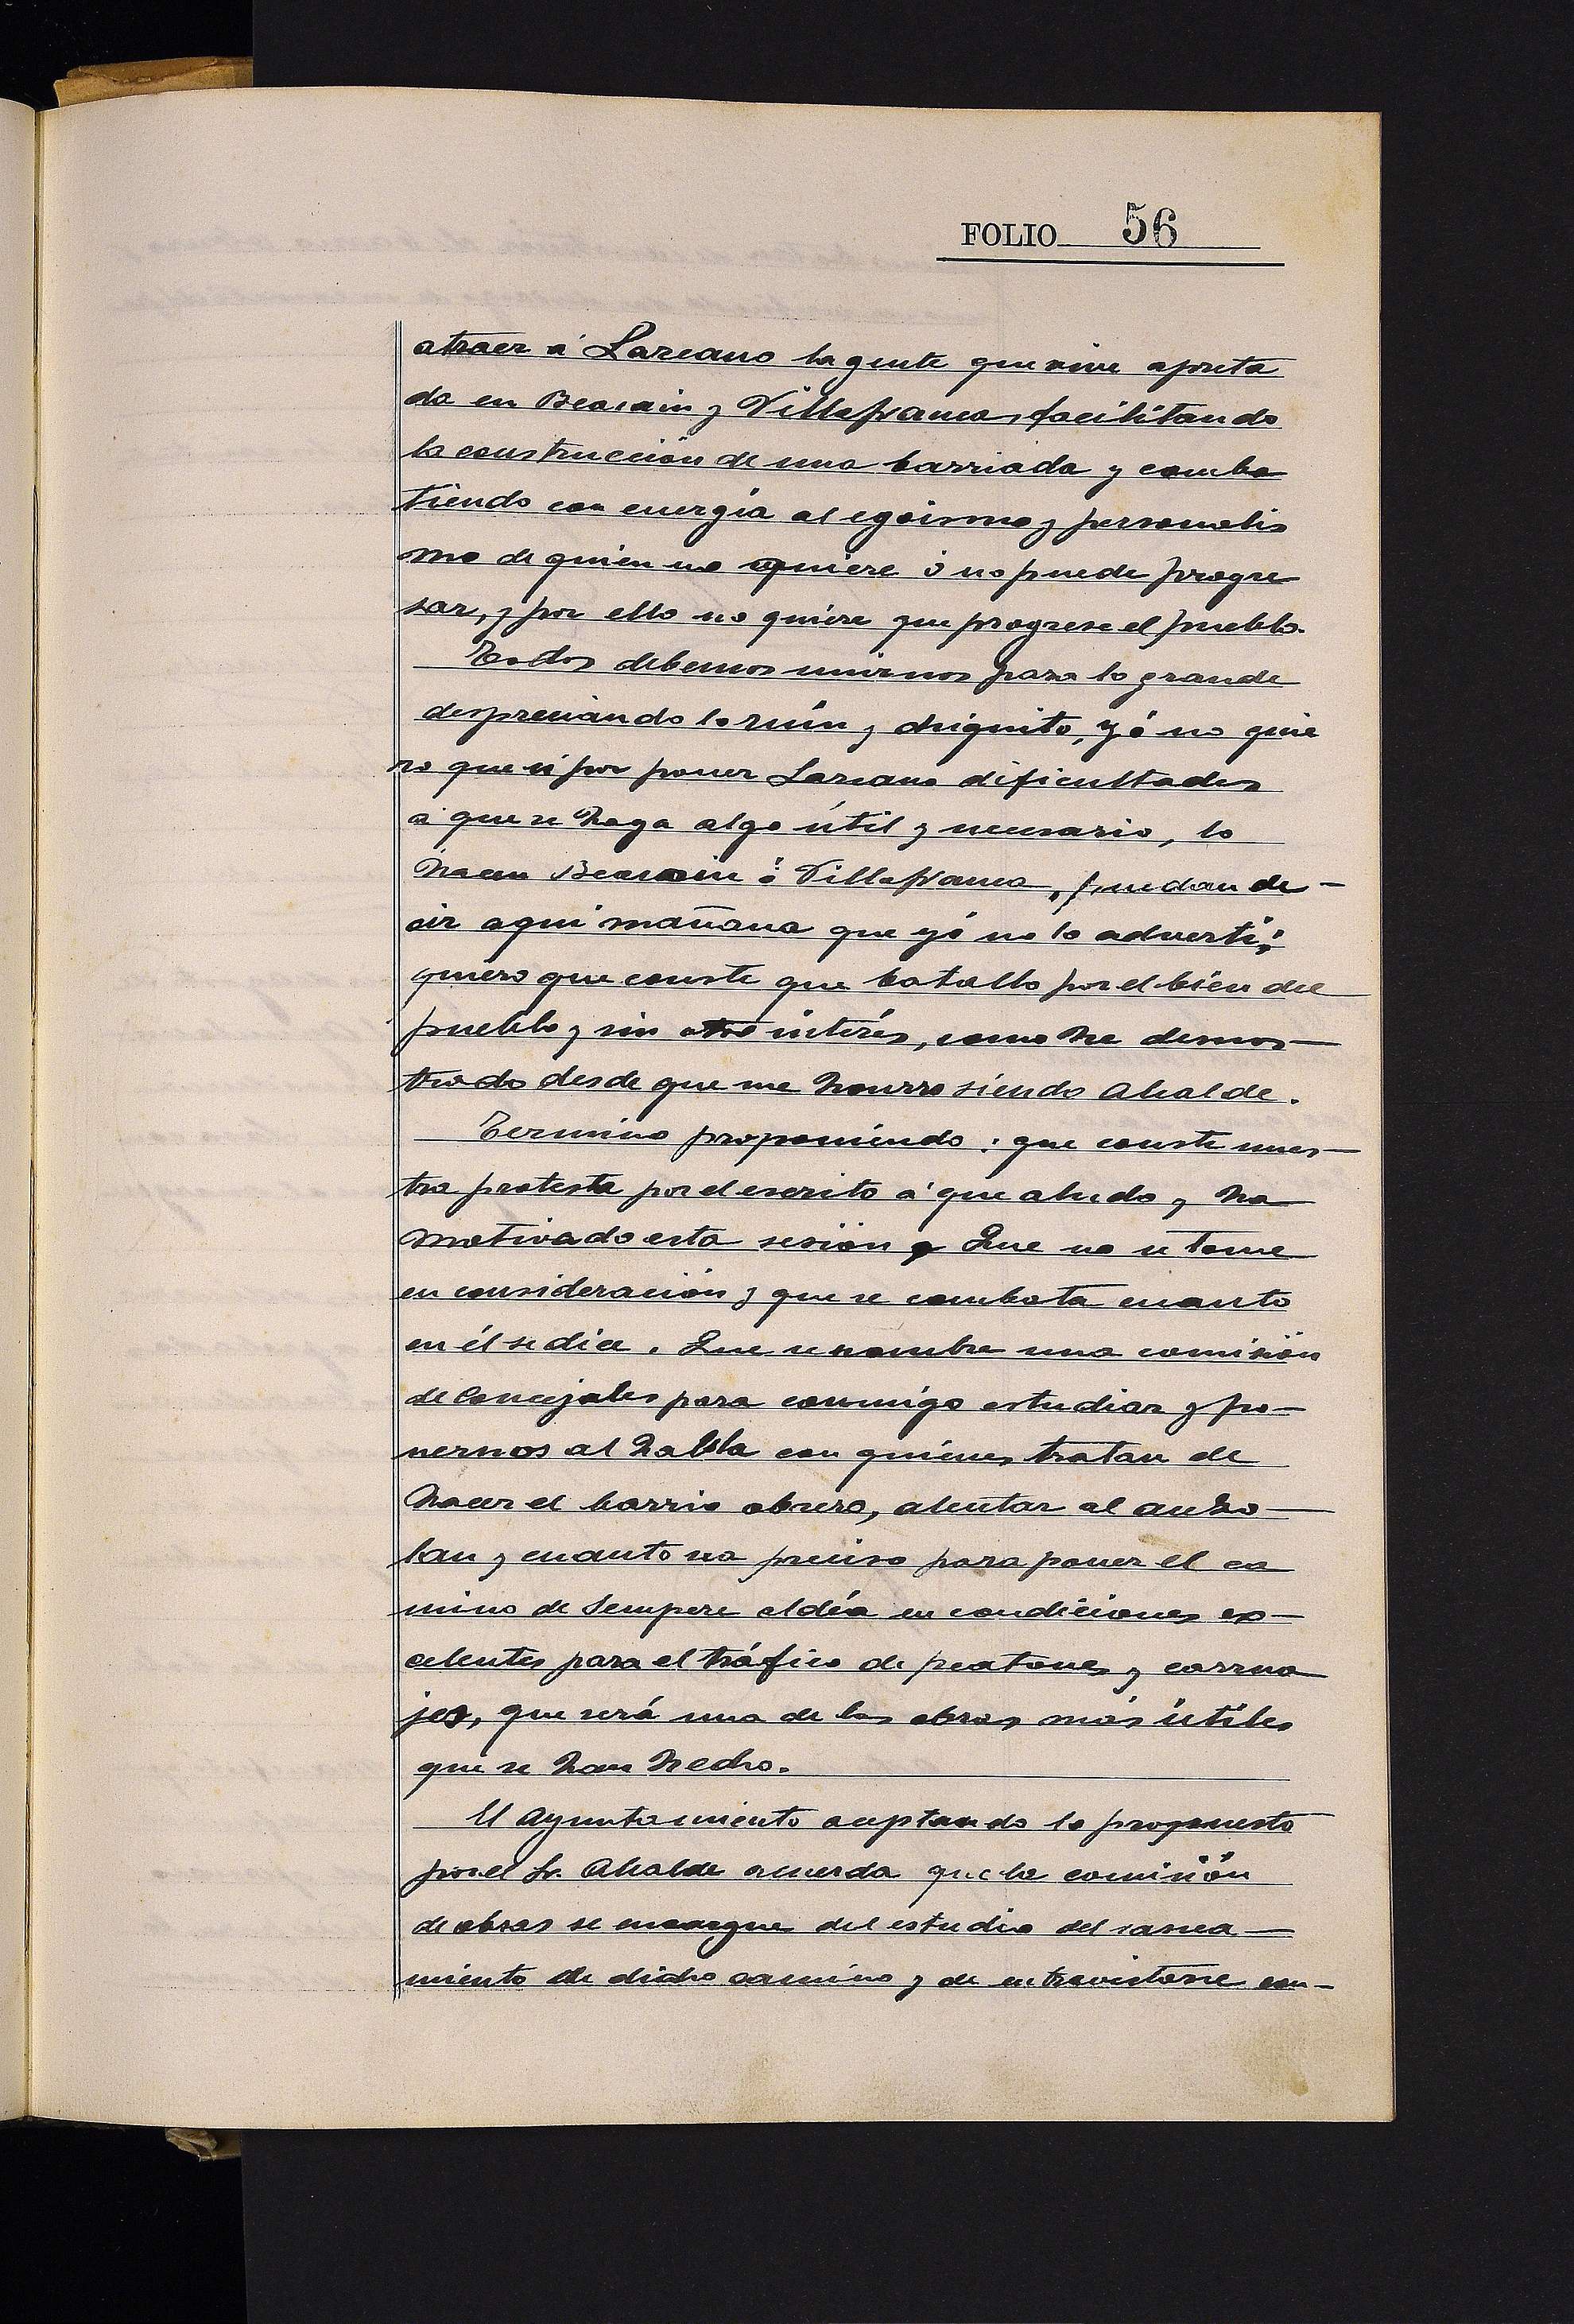 FOLIO 56
atraer á Lazcano la gente que vive apreta
da en Beasain y Villafranca, facilitando
la construcción de una barriada y comba
tiendo con energía al egoismo y personalis
mo de quien no quiere ó no puede progre
sar, y por ello no quiere que progrese el pueblo.
Todos debemos unirnos para lo grande
despreciando lo ruín y chiquito, yó no quie
ro que si por poner Lazcano dificultades
á que se haga algo útil y necesario, lo
hacen Beasain ó Villafranca, puedan de-
cir aquí mañana que yó no lo advertí;
quiero que conste que batallo por el bién del
pueblo y sin otro interés, como he demos-
trado desde que me honrro siendo Alcalde.
Termino proponiendo: que conste nues-
tra protesta por el escrito á que aludo y ha
motivado esta sesión y Que no se tome
en consideración y que se combata cuanto
en él se dice. Que se nombre una comisión
de Concejales para conmigo estudiar y po-
nernos al habla con quienes tratan de
hacer el barrio obrero, alentar al auzo-
lan y cuanto sea preciso para poner el ca
mino de Sempere al día en condiciones ex-
celentes para el tráfico de peatones y carrua
jes, que será una de las obras más útiles
que se han hecho.
El Ayuntamiento aceptando lo propuesto
por el Sr. Alcalde acuerda que la comisión
de obras se encargue del estudio del sanea-
miento de dicho camino y de entrevistarse con-